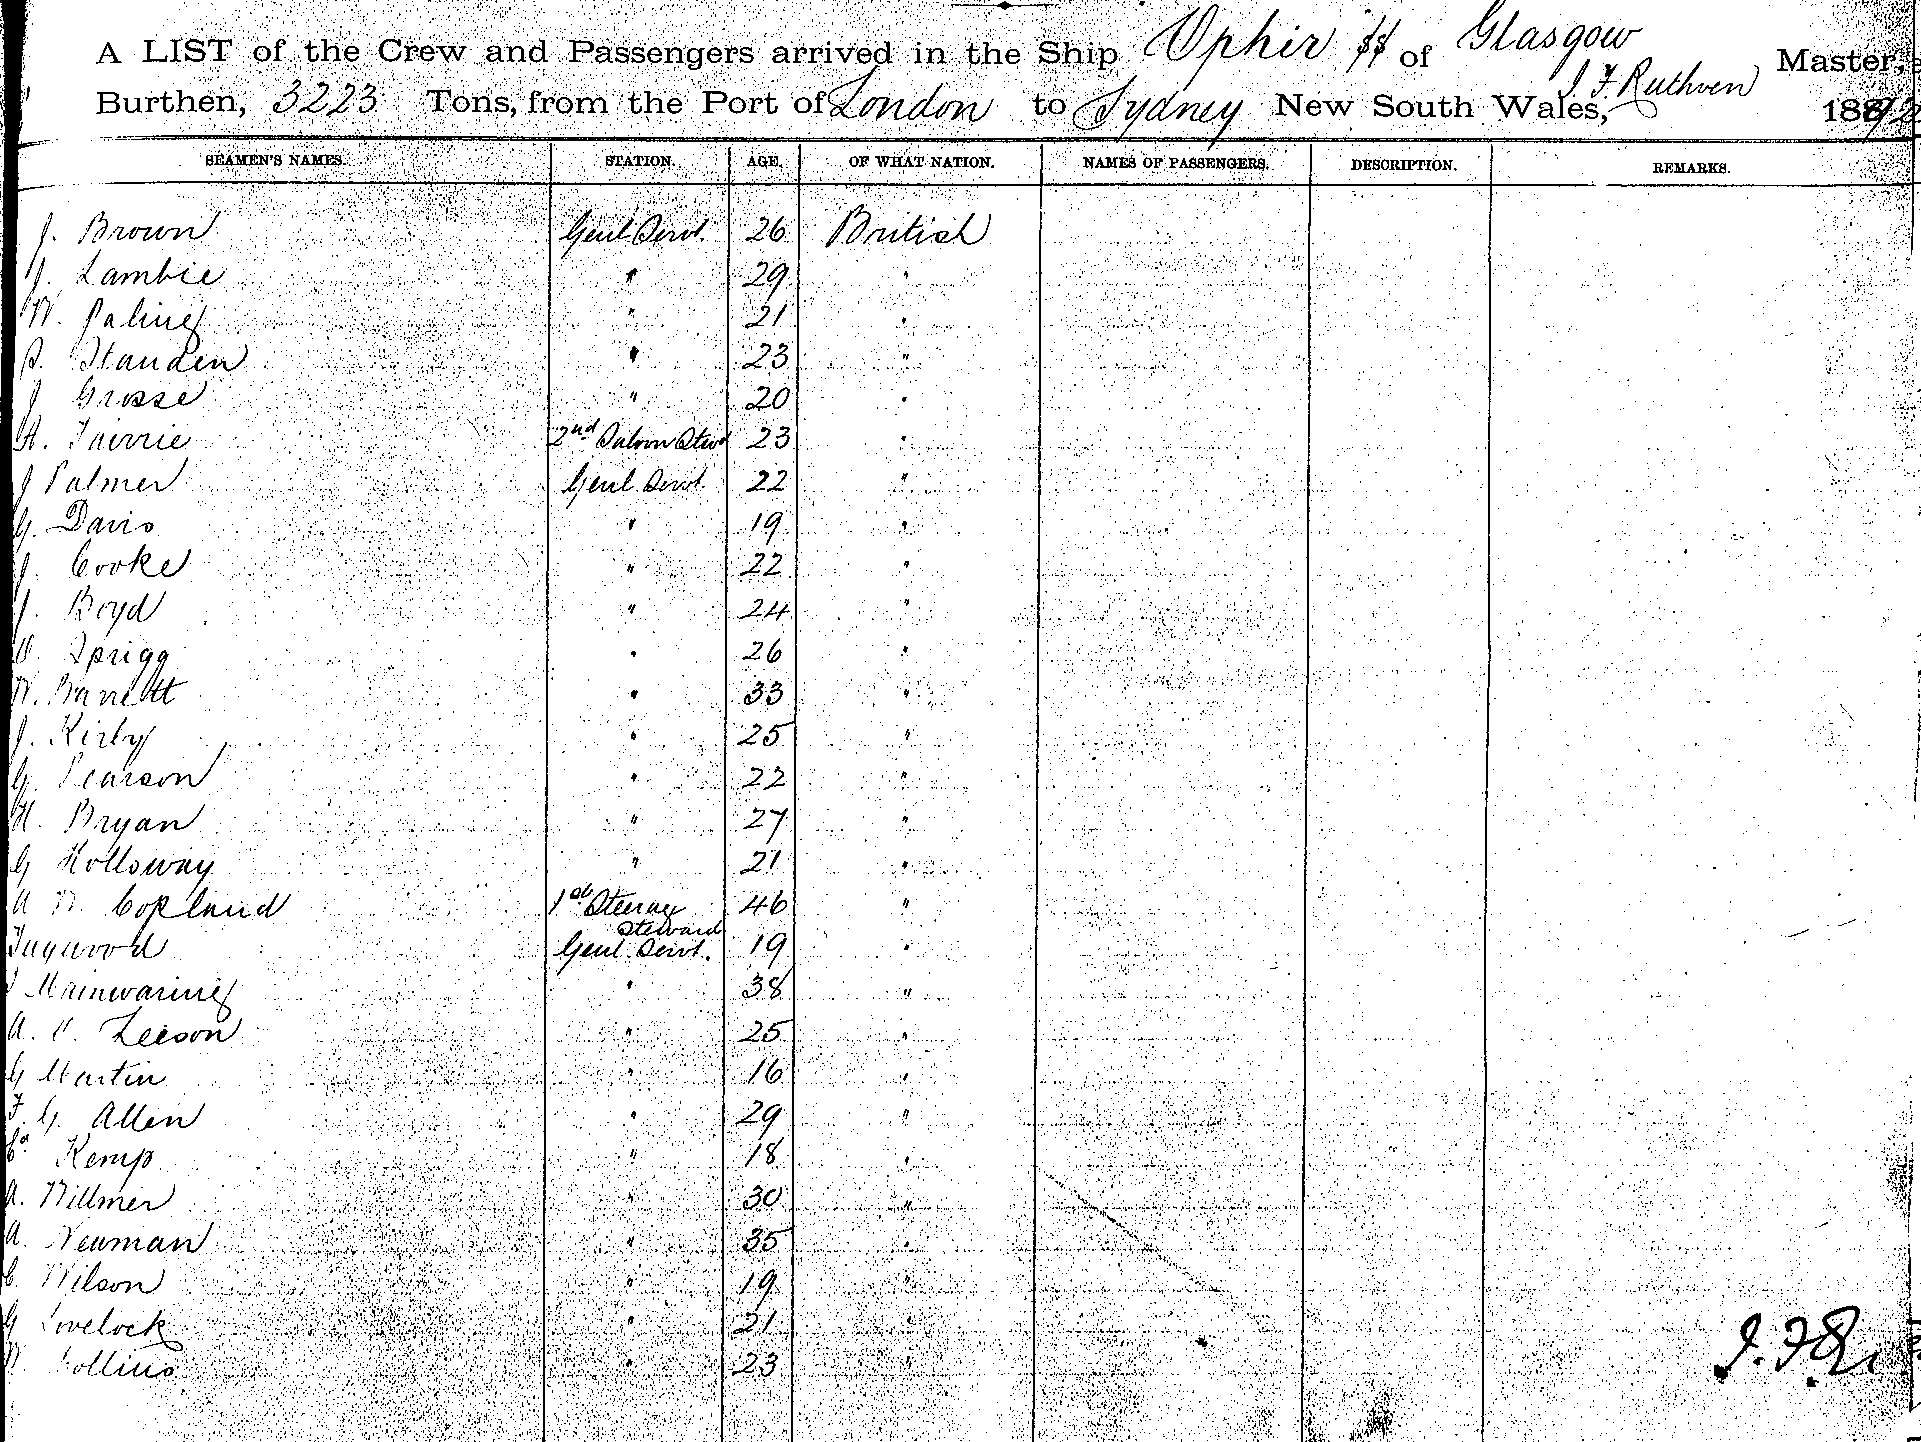 A LIST of the Crew and Passengers arrived in the Ship Ophir SS of Glasgow J. F. Ruthven Master,
Burthen, 3223 Tons, from the Port of London to Sydney New South Wales, 1892
SEAMEN'S NAMES. STATION. AGE. OF WHAT NATION. NAMES OF PASSENGERS. DESCRIPTION. REMARKS.
J. Brown Genl Servt. 26 British
J. Lambie " 29 "
W. Paling " 21 "
S. Standen " 23 "
J Grosse " 20 "
A. Fairrie 2nd Saloon Stwd 23 "
J Palmer Genl Servt 22 "
G. Davis " 19 "
J. Cooke " 22 "
J. Boyd " 24 "
Sprigg " 26 "
W. Barrett " 33 "
J. Kirby " 25 "
G. Pearson " 22 "
H. Bryan " 27 "
G Holloway " 21 "
A W. Copland 1st Steerage Steward 46 "
Genl Servt. 19 "
Mainwaring " 38 "
A. Leeson " 25 "
G Martin " 16 "
F. G. Allen " 29 "
Kemp " 18 "
A. Willmer " 30 "
A. Newman " 35 "
C. Wilson " 19 "
G Lovelock " 21 "
W Collins " 23 "
J. F. R